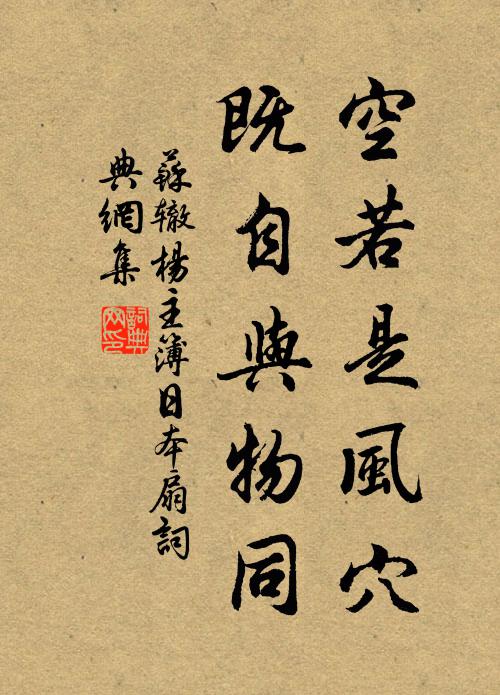 空若是風穴
既自與物同
蘇轍楊主簿日本扇詞
典網集
詞典网印